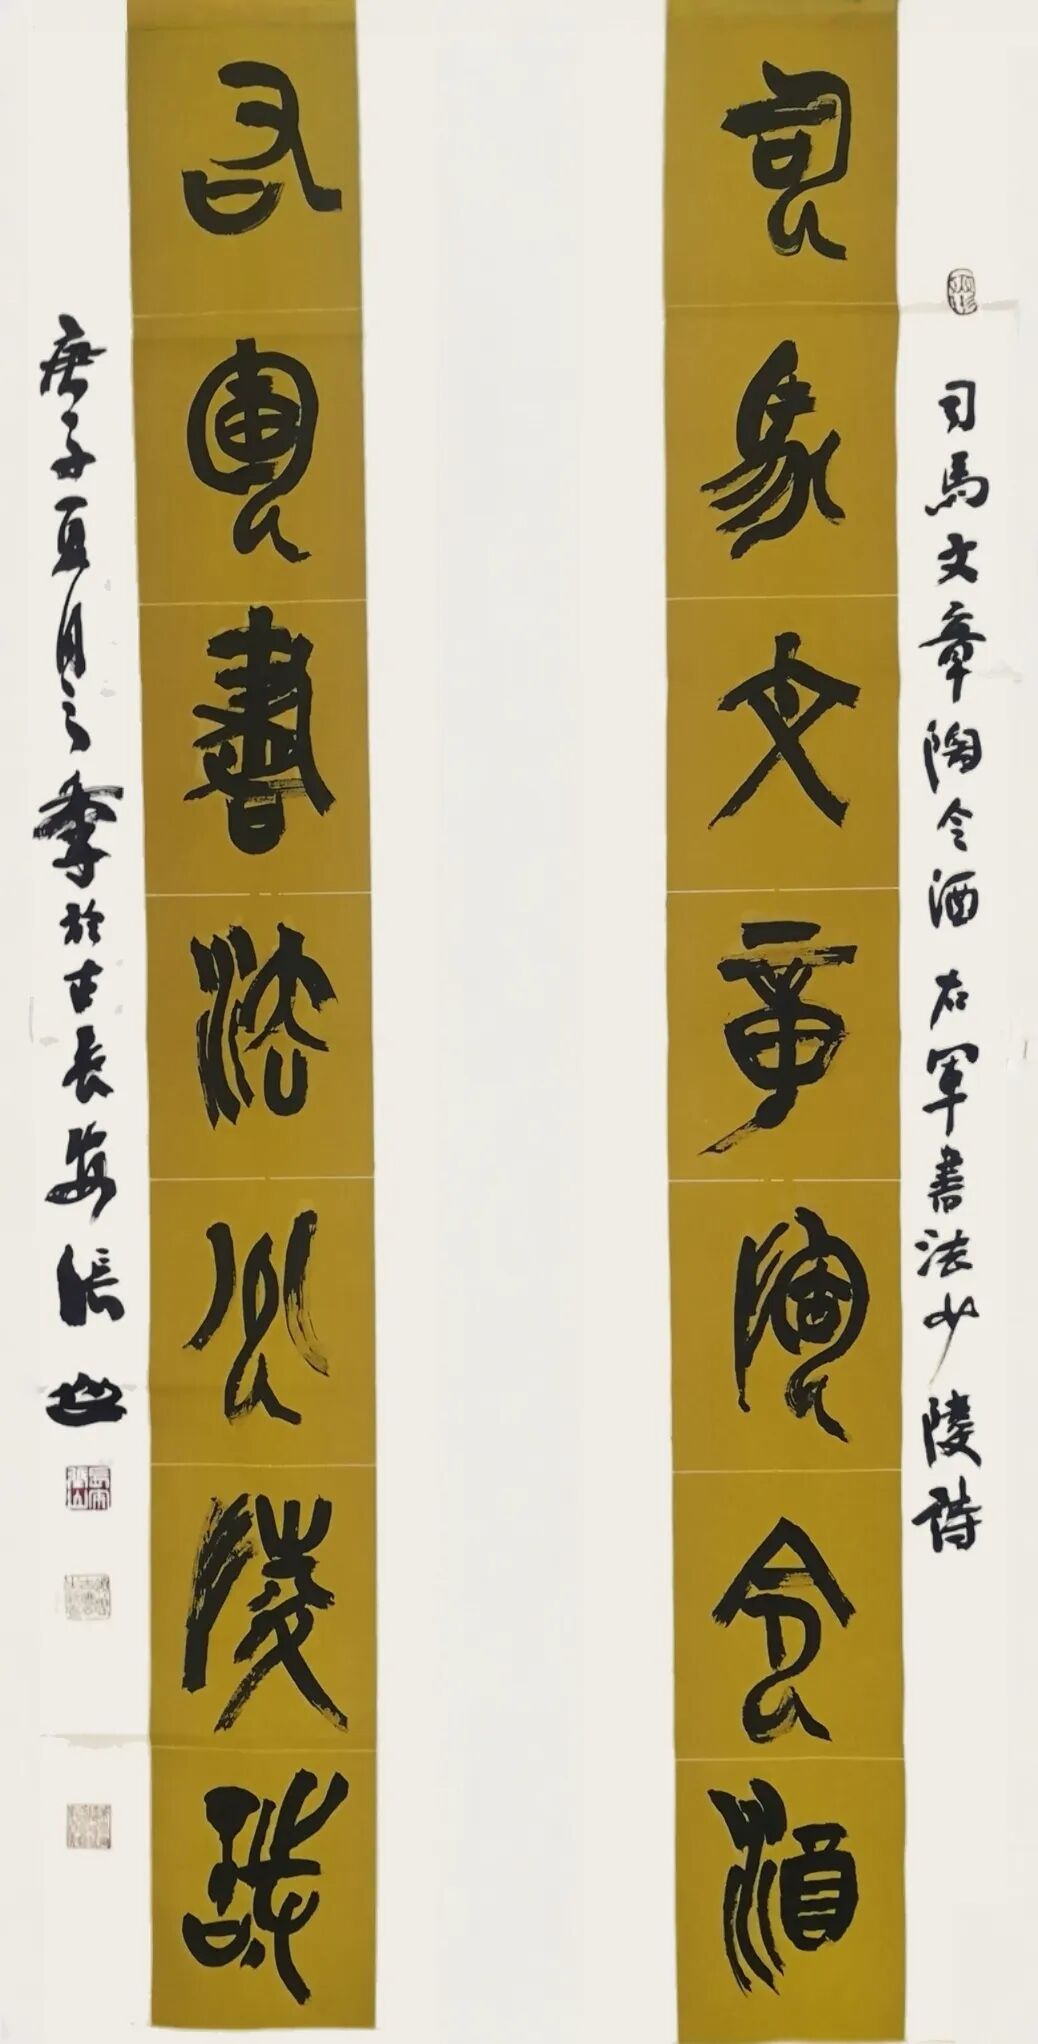 司馬文章陶令酒 右軍書法少陵詩
司馬文章陶令酒
右軍書法少陵詩
庚子夏月之季於古長安張